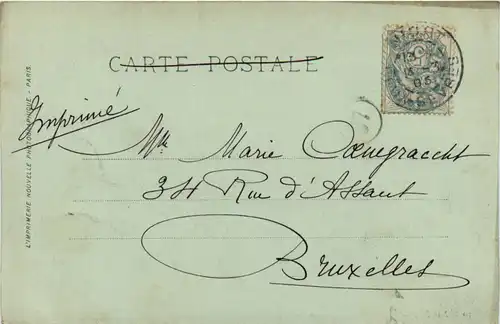 CARTE POSTALE
Imprimé
Mlle Marie Coenegracht
34 Rue d'Assaut
Bruxelles
L'IMPRIMERIE NOUVELLE PHOTOGRAPHIQUE - PARIS.